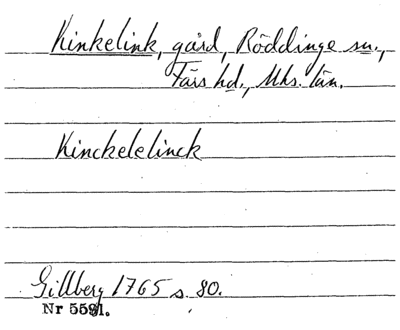 Kinkelink, gård, Röddinge sn.,
Färs hd., Mhs. län.
Kinckelelinck
Gillberg 1765 s. 80.
Nr 5591.